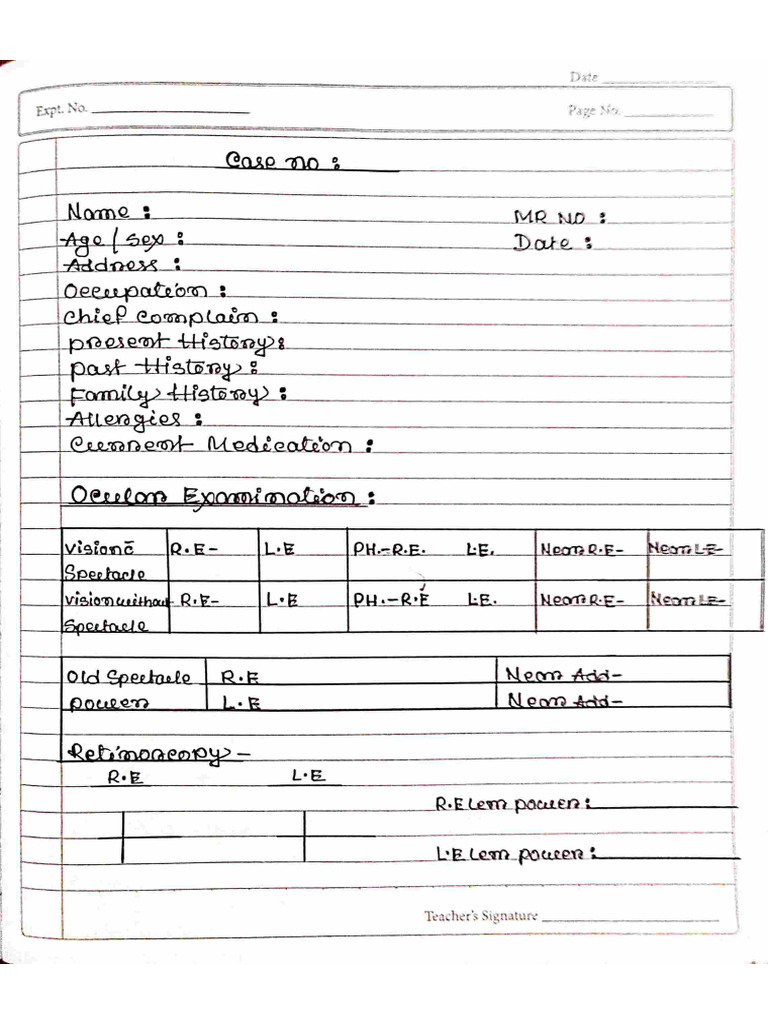 Date
Expt. No.
Page No.
Case no :
Name :
MR NO :
Age / Sex :
Date :
Address :
Occupation :
Chief Complain :
Present History :
Past History :
Family History :
Allergies :
Current Medication :
Ocular Examination :
Vision c̄ Spectacle R.E- L.E PH.-R.E. L.E. Near R.E- Near L.E-
Vision without Spectacle R.E- L.E PH.-R.E L.E. Near R.E- Near L.E-
Old Spectacle R.E Near Add-
Power L.E Near Add-
Retinoscopy -
R.E L.E
R.E lem power :
L.E lem power :
Teacher's Signature